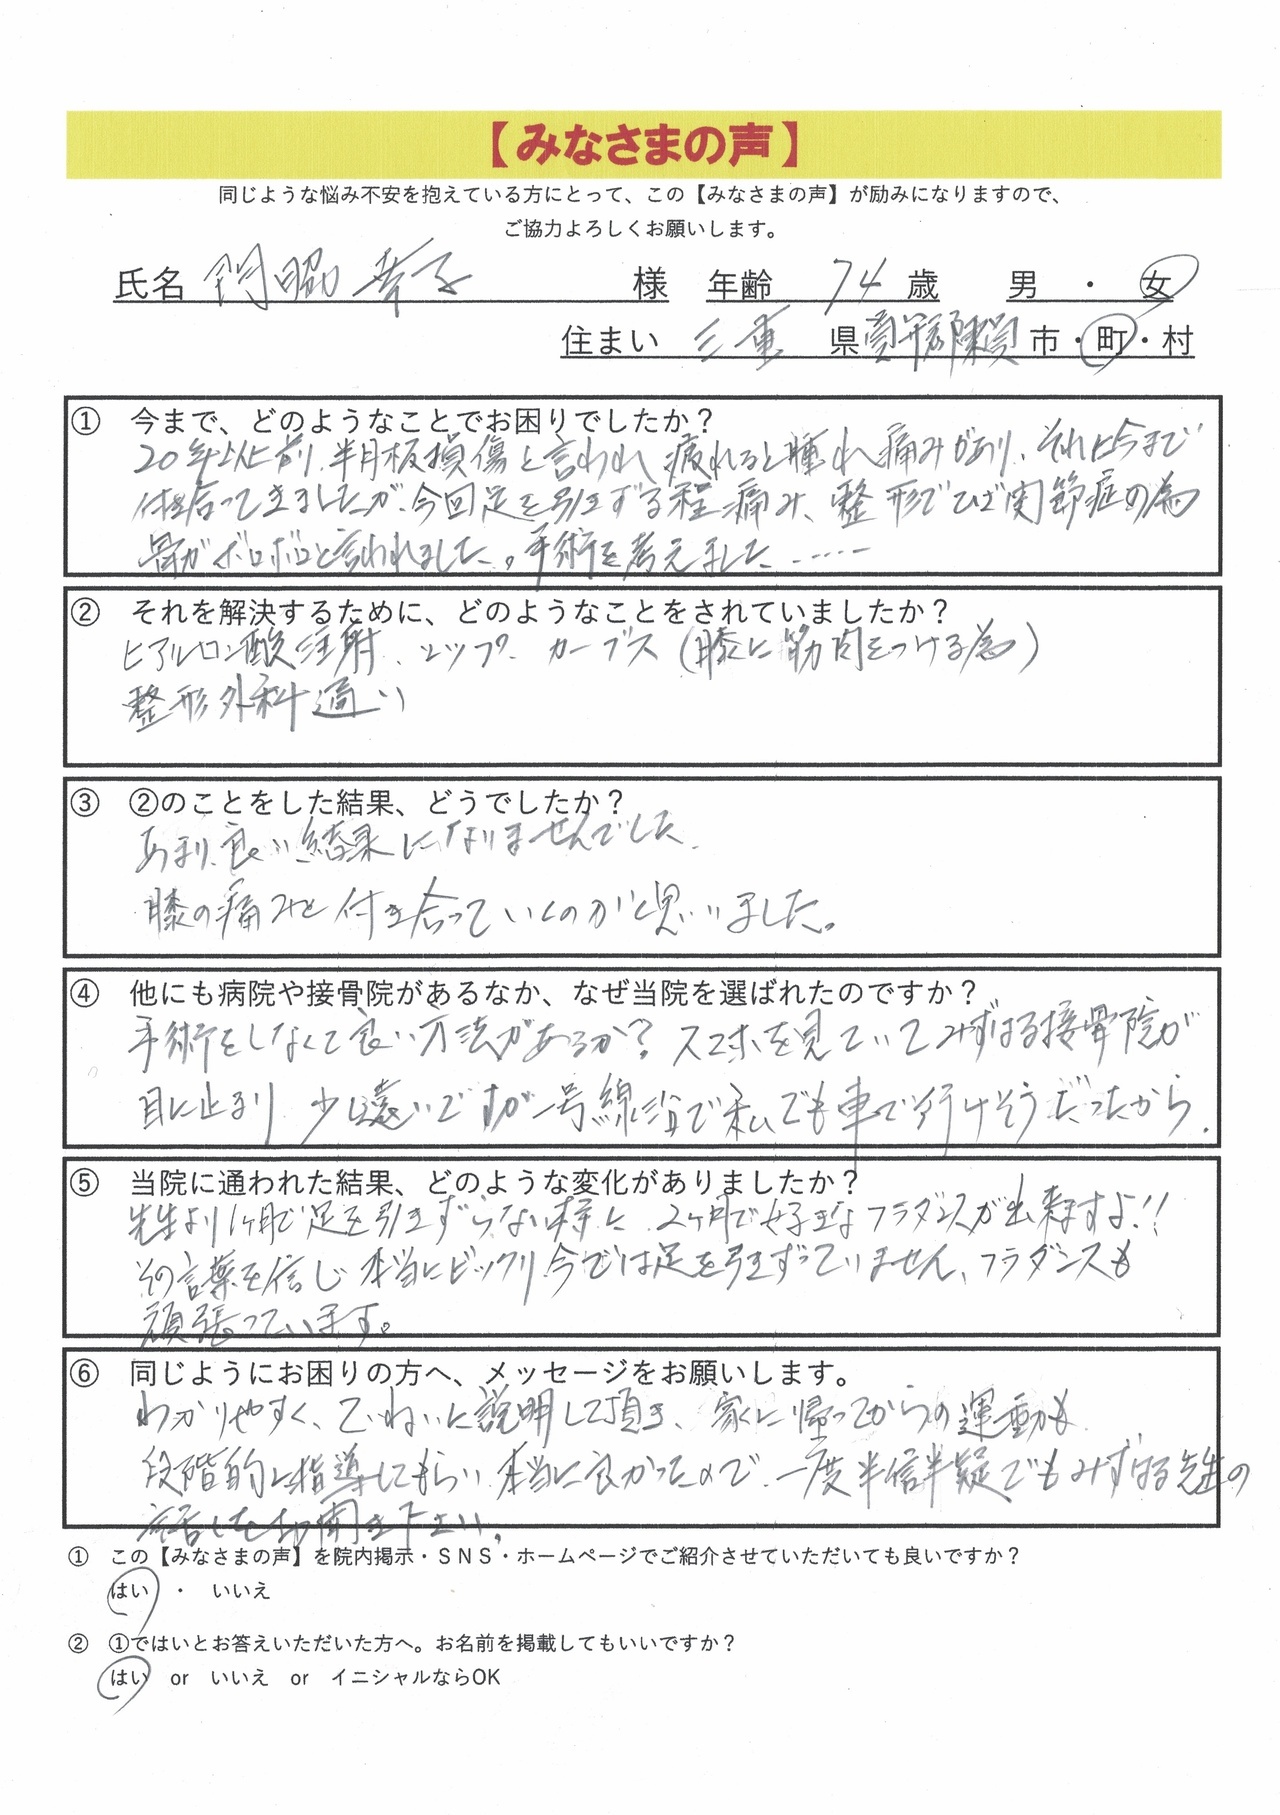 【みなさまの声】
同じような悩み不安を抱えている方にとって、この【みなさまの声】が励みになりますので、
ご協力よろしくお願いします。
氏名 門脇 幸子 様 年齢 74 歳 男 ・ 女
住まい 三重 県 員弁郡東員 市・町・村
① 今まで、どのようなことでお困りでしたか？
20年以上前、半月板損傷と言われ疲れると腫れ痛みがあり、それと今まで
付き合ってきましたが、今回足を引きずる程痛み、整形でひざ関節症の為
骨がボロボロと言われました。手術を考えました‥‥
② それを解決するために、どのようなことをされていましたか？
ヒアルロン酸注射、シップ、カーブス（膝に筋肉をつける為）
整形外科通い
③ ②のことをした結果、どうでしたか？
あまり良い結果になりませんでした。
膝の痛みと付き合っていくのかと思いました。
④ 他にも病院や接骨院があるなか、なぜ当院を選ばれたのですか？
手術をしなくて良い方法があるか？スマホを見ていてみずはる接骨院が
目に止まり 少し遠いですが一号線沿で私でも車で行けそうだったから.
⑤ 当院に通われた結果、どのような変化がありましたか？
先生より1ヶ月で足を引きずらない様に、2ヶ月で好きなフラダンスが出来ますよ!!
その言葉を信じ 本当にビックリ 今では足を引きずっていません、フラダンスも
頑張っています。
⑥ 同じようにお困りの方へ、メッセージをお願いします。
わかりやすく、ていねいに説明して頂き、家に帰ってからの運動も
段階的に指導してもらい 本当に良かったので、一度半信半疑でもみずはる先生の
話しをお聞き下さい。
① この【みなさまの声】を院内掲示・ＳＮＳ・ホームページでご紹介させていただいても良いですか？
はい ・ いいえ
② ①ではいとお答えいただいた方へ。お名前を掲載してもいいですか？
はい or いいえ or イニシャルならOK